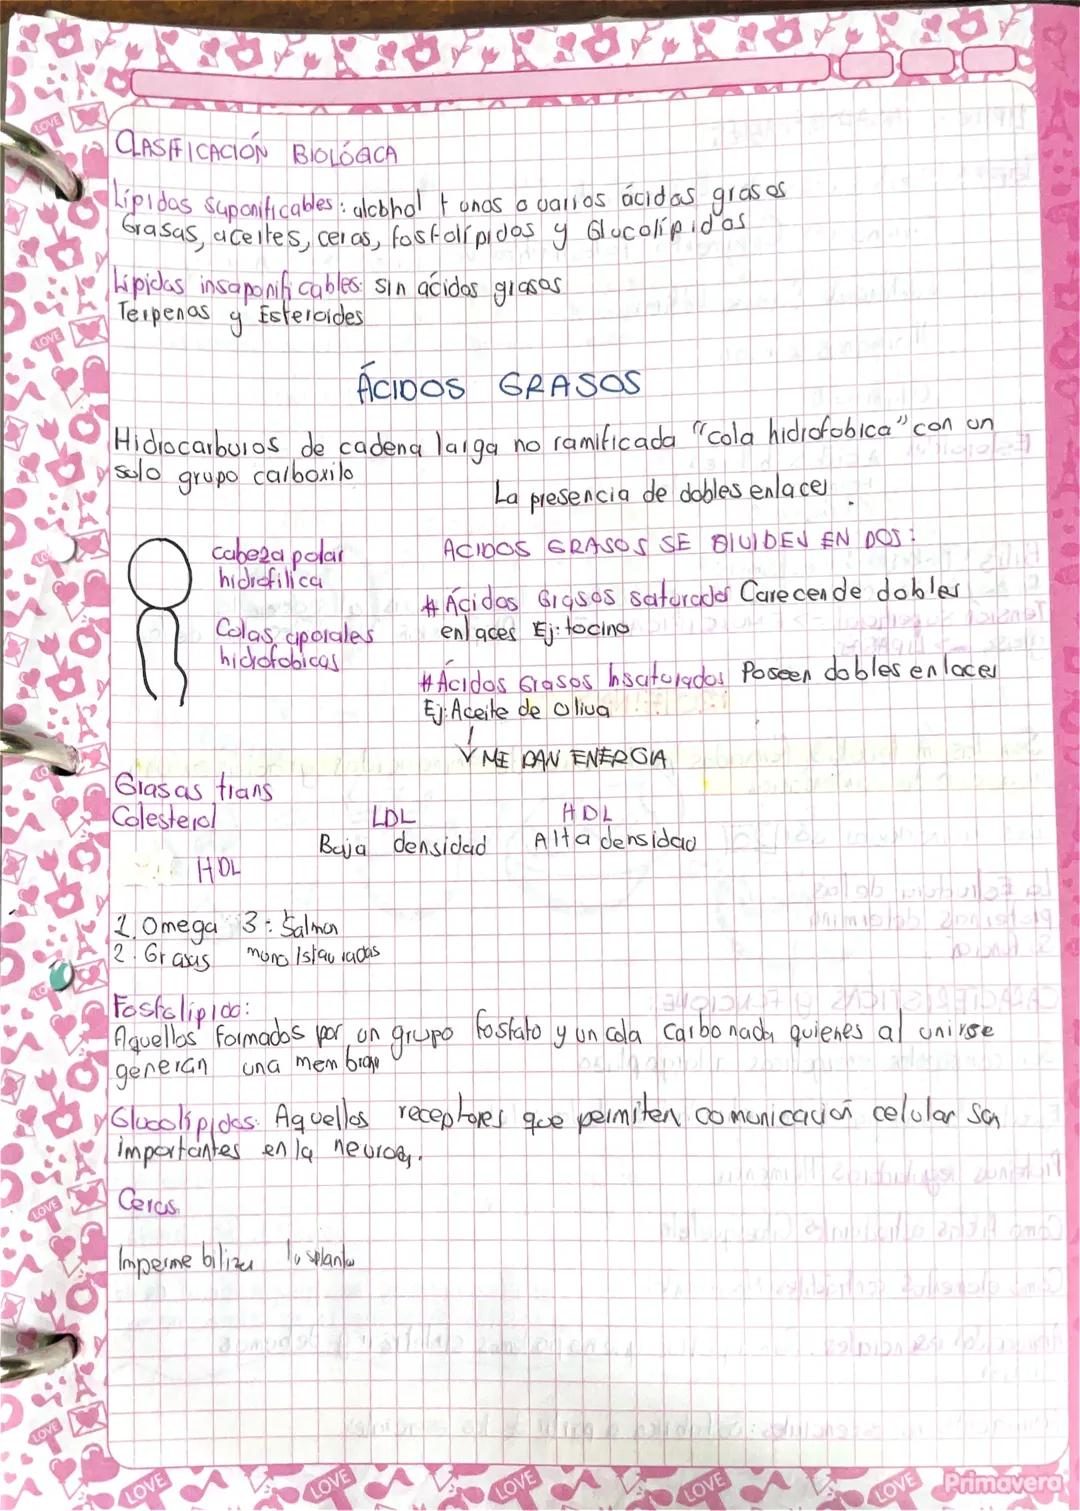 CLASIFICACIÓN BIOLÓGICA
Lípidos saponificables: alcohol + unos o varios ácidos grasos
Grasas, aceites, ceras, fosfolípidos y Glucolípidos
Lípidos insaponificables: sin ácidos grasos
Terpenos y Esteroides
ÁCIDOS GRASOS
Hidrocarburos de cadena larga no ramificada "cola hidrofobica" con un
solo grupo carboxilo
La presencia de dobles enlaces
cabeza polar
hidrofilica
Colas apolales
hidrofobicas
ACIDOS GRASOS SE DIVIDEN EN DOS:
# Ácidos Grasos saturados Carecen de dobles
enlaces Ej: tocino
# Ácidos Grasos Insaturados Poseen dobles enlaces
Ej: Aceite de oliva
ME DAN ENERGIA
Grasas trans
Colesterol LDL HDL
Baja densidad Alta densidad
HDL
1. Omega 3: Salmon
2. Grasas
Fosfolípido:
Aquellos formados por un grupo fosfato y un cola carbonada quienes al unirse
generan una membrana
Glucolípidos: Aquellos receptores que permiten comunicación celular son
importantes en la
Ceras
LOVE
LOVE
LOVE
LOVE
LOVE
LOVE
LOVE
LOVE
LOVE
Primavera